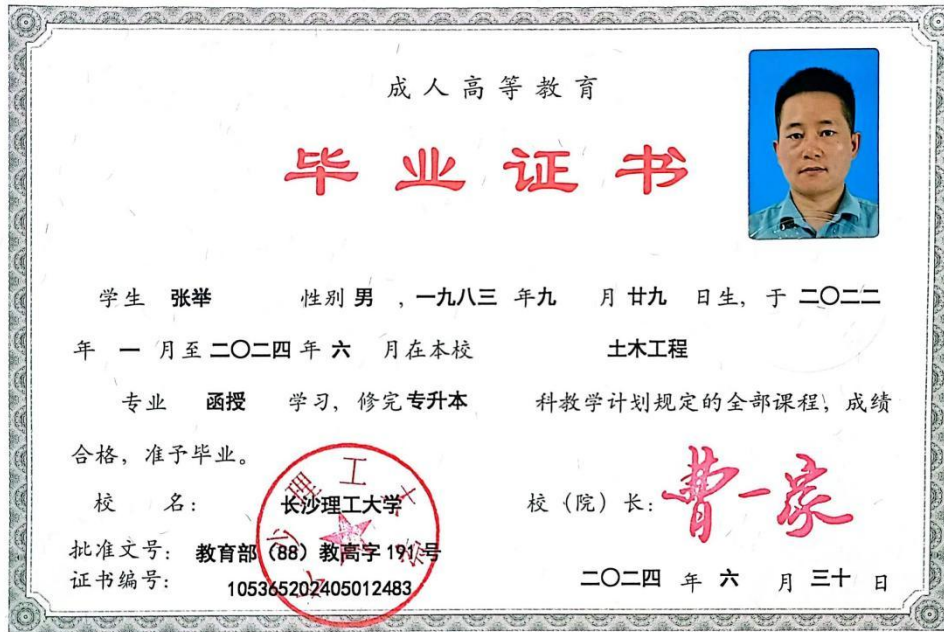 成人高等教育
毕业证书
学生 张举 性别 男 ，一九八三 年九 月 廿九 日生，于 二〇二二
年 一 月至 二〇二四 年 六 月在本校 土木工程
专业 函授 学习，修完 专升本 科教学计划规定的全部课程，成绩
合格，准予毕业。
校 名： 长沙理工大学 校（院）长：曹一家
批准文号： 教育部（88）教高字 191 号
证书编号： 105365202405012483 二〇二四 年 六 月 三十 日
长沙理工大学